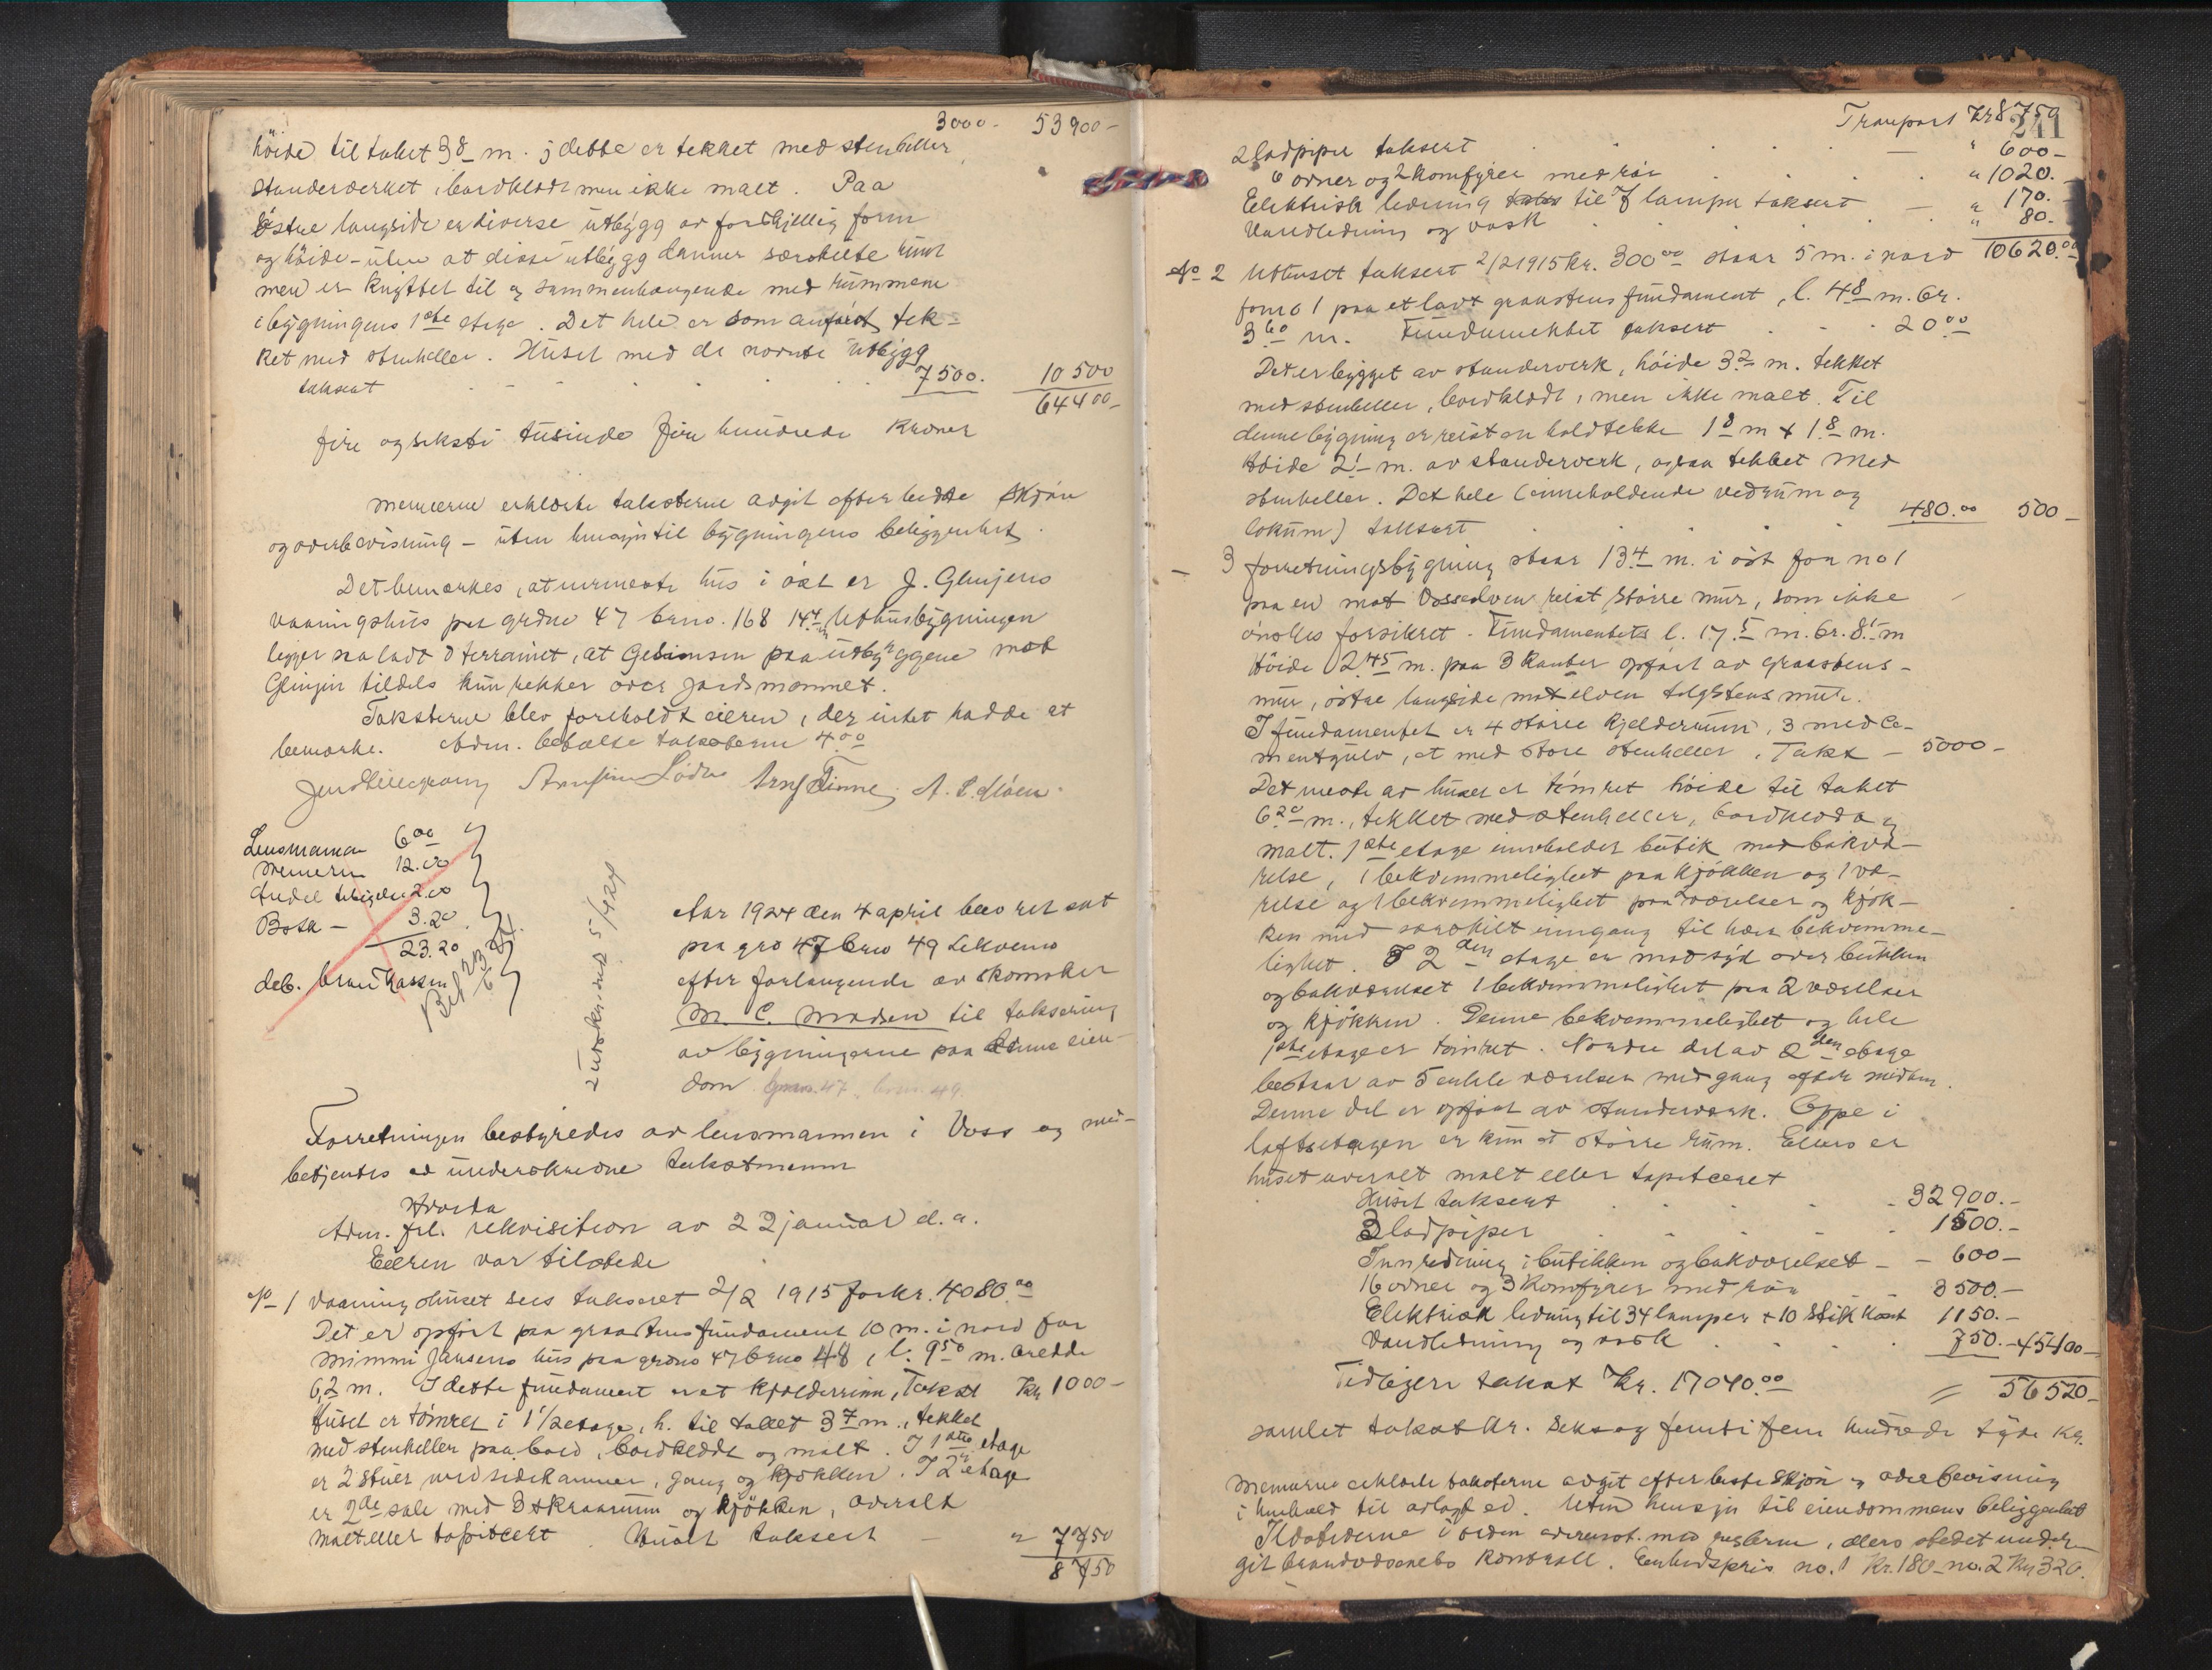 3000- 53900-
høide til taket 3.8 m. i dette er tekket med stenheller
standerverket, bordklædt men ikke malt. Paa
østre langside er diverse utbygg av forskjellig form
og høide - uten at disse utbygg danner særskilte rum
men er knyttet til og sammenhængende med rummene
i bygningens 1ste etage. Det hele er som anført tek-
ket med stenheller. Huset med de nævnte utbygg
taksert 7500. 10500
64400-
fire og seksti tusinde fire hundrede kroner
Mennerne erklærte taksterne avgit efter bedste skjøn
og overbevisning - uten hensyn til bygningens beliggenhet.
Det bemerkes, at nærmeste hus i øst er J. Glinjens
vaaningshus paa grdno 47 brno. 168 14.4 m. Uthusbygningen
ligger saa lavt i terrainet, at Gesimsen paa utbyggene mot
Glinjen tildels kun rekker over jordsmonnet.
Taksterne blev foreholdt eieren, der intet hadde at
bemerke. Adm. betalte taksterne 4.00
Lensmannen 6.00
Mennerne 12.00
Andel 2.00
Bok - 3.20
23.20
deb. brandkassen
Bet 23/6 24.
2 utskrivd 5/4 24
Aar 1924 den 4 april blev ret sat
paa gno 47 bno 49 Lekvemo
efter forlangende av skomaker
M. C. Madsen til taksering
av bygningerne paa denne eien-
dom gno. 47. bno. 49.
Forretningen bestyredes av lensmannen i Voss og med-
betjentes av underskrevne takstmenn
Hvorda
Adm. frl. rekvisition av 22 januar d. a.
Eieren var tilstede
No 1 Vaaningshuset sees taksert 2/2 1915 for kr. 4080.00
Det er opført paa graastensfundament 10 m. i nord for
Mimmi Jansens hus paa grdno 47 brno 48, l. 9.50 m. bredde
6,2 m. I dette fundament er et kjelderrum, Takst Kr 1000-
Huset er tømret i 1 1/2 etage, h. til taket 3.7 m., tekket
med stenheller paa bord, bordklædt og malt. I 1ste etage
er 2 stuer med sidekammer, gang og kjøkken. I 2. etage
er 2de sale med 3 skraarum og kjøkken, overalt
malt eller tapitsert. Huset taksert - " 7750
8750
Transport Kr 8750
241
2 ladpiper taksert - " 600-
6 ovner og 2 komfyrer med rør " 1020.-
Elektrisk ledning til 7 lamper taksert - " 170.-
Vandledning og vask " 80.-
10620.00
No 2 Uthuset taksert 2/2 1915 kr. 300.00 staar 5 m. i nord
for no 1 paa et lavt graastens fundament, l. 4.8 m. br.
3.60 m. Fundamentet taksert . . . 20.00
Det er bygget av standerverk, høide 3.2 m. tekket
med stenheller, bordklædt, men ikke malt. Til
denne bygning er reist en holdtekke 1.8 m x 1.8 m.
Høide 2.1 m. av standerverk, ogsaa tekket med
stenheller. Det hele (inneholdende vedrum og
lokum) taksert 480.00 500-
- 3 Forretningsbygning staar 13.4 m. i øst for no 1
paa en mot Vosselven reist større mur, som ikke
ønskes forsikret. Fundamentets l. 17.5 m. br. 8.1 m
Høide 2.45 m. paa 3 kanter opført av graastens-
mur, østre langside mot elven talgstens mur.
I fundamentet er 4 større kjelderrum, 3 med ce-
mentgulv, et med store stenheller. Takst - 5000-
Det meste av huset er tømret høide til taket
6.20 m., tekket med stenheller, bordklædd og
malt. 1ste etage inneholder butik med bakvæ-
relse, 1 bekvemmelighet paa kjøkken og 1 væ-
relse og 1 bekvemmelighet paa 2 værelser og kjøk-
ken med særskilt inngang til hver bekvemme-
lighet. I 2den etage er mot syd over butikken
og bakværelset 1 bekvemmelighet paa 2 værelser
og kjøkken. Denne bekvemmelighet og hele
1ste etage er tømret. Nordre del av 2den etage
bestaar av 5 enkle værelser med gang efter midten.
Denne del er opført av standerverk. Oppe i
loftsetagen er kun et større rum. Ellers er
huset overalt malt eller tapitceret
Huset taksert 32900.-
3 ladpiper 1500.-
Innredning i butikken og bakværelset - - 600-
16 ovner og 3 komfyrer med rør 3500.-
Elektrisk ledning til 34 lamper + 10 stikkont 1150.-
Vandledning og vask 750.- 45400-
Tidligere takst Kr. 17040.00 = 56520-
samlet takst kr. Seks og femti fem hundrede tyve kr.
Mennerne erklærte taksterne avgit efter beste skjøn og overbevisning
i henhold til avlagt ed. Uten hensyn til eiendommens beliggenhet
Ildstederne i orden overensst. med reglerne, ellers stedet under-
git brandvæsenets kontroll. Enhedspris no. 1 Kr. 180 - no. 2 Kr 320.